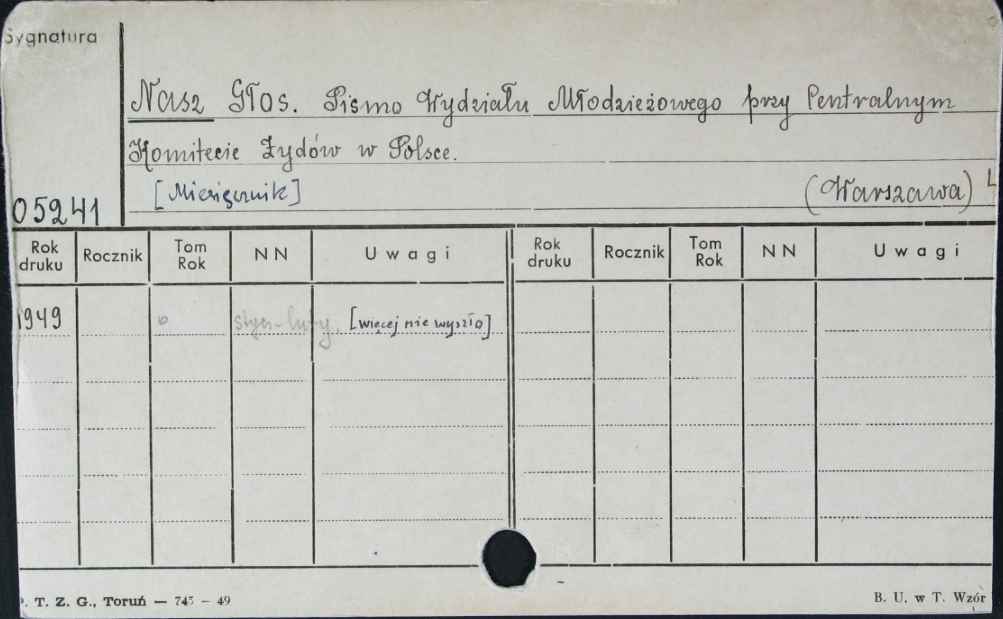 Sygnatura
Nasz Głos. Pismo Wydziału Młodzieżowego przy Centralnym
Komitecie Żydów w Polsce.
[Miesięcznik] (Warszawa)
05241
Rok druku Rocznik Tom Rok NN Uwagi Rok druku Rocznik Tom Rok NN Uwagi
1949 stycz-luty. [więcej nie wyszło]
T. Z. G., Toruń — 745 – 49 B. U. w T. Wzór